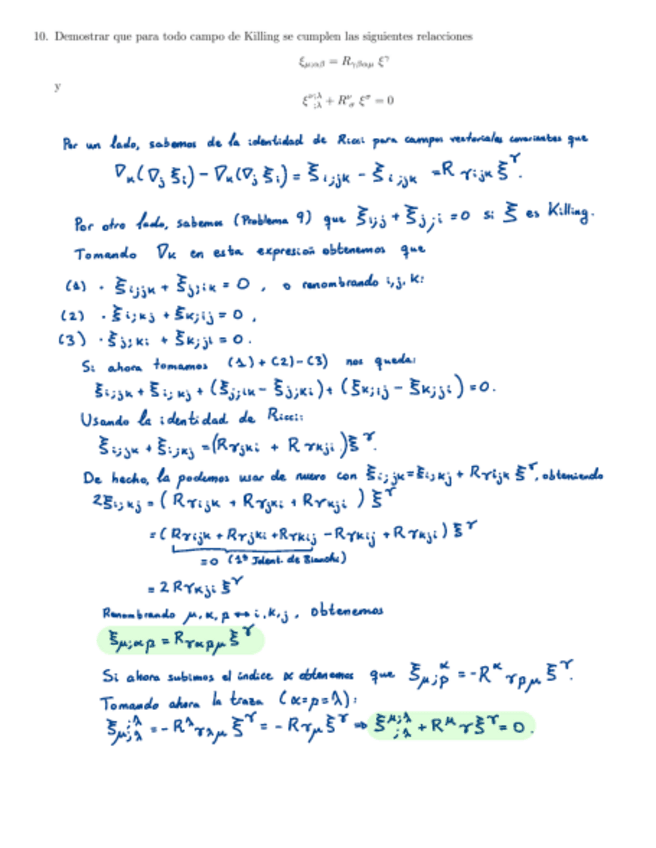 10. Demostrar que para todo campo de Killing se cumplen las siguientes relacciones
ξ_{μ;αβ} = R_{γβαμ} ξ^γ
y
ξ^{ν;λ}_{;λ} + R^ν_σ ξ^σ = 0
Por un lado, sabemos de la identidad de Ricci para campos vectoriales covariantes que
∇_k(∇_j ξ_i) - ∇_k(∇_j ξ_i) = ξ_{i;jk} - ξ_{i;jk} = R_{γijk} ξ^γ.
Por otro lado, sabemos (Problema 9) que ξ_{i;j} + ξ_{j;i} = 0 si ξ es Killing.
Tomando ∇_k en esta expresión obtenemos que
(1) · ξ_{i;jk} + ξ_{j;ik} = 0, o renombrando i,j,k:
(2) · ξ_{i;kj} + ξ_{k;ij} = 0,
(3) · ξ_{j;ki} + ξ_{k;ji} = 0.
Si ahora tomamos (1)+(2)-(3) nos queda:
ξ_{i;jk} + ξ_{i;kj} + (ξ_{j;ik} - ξ_{j;ki}) + (ξ_{k;ij} - ξ_{k;ji}) = 0.
Usando la identidad de Ricci:
ξ_{i;jk} + ξ_{i;kj} = (R_{γjki} + R_{γkji}) ξ^γ.
De hecho, la podemos usar de nuevo con ξ_{i;jk} = ξ_{i;kj} + R_{γijk} ξ^γ, obteniendo
2ξ_{i;kj} = (R_{γijk} + R_{γjki} + R_{γkji}) ξ^γ
= (R_{γijk} + R_{γjki} + R_{γkij} - R_{γkij} + R_{γkji}) ξ^γ
= 0 (1ª Ident. de Bianchi)
= 2R_{γkji} ξ^γ
Renombrando μ,α,β ↔ i,k,j, obtenemos
ξ_{μ;αβ} = R_{γαβμ} ξ^γ
Si ahora subimos el índice α obtenemos que ξ_{μ;β}^α = -R^α_{γβμ} ξ^γ.
Tomando ahora la traza (α=β=λ):
ξ_{μ;λ}^{;λ} = -R^λ_{γλμ} ξ^γ = -R_{γμ} ξ^γ ⇒ ξ^{μ;λ}_{;λ} + R^μ_γ ξ^γ = 0.